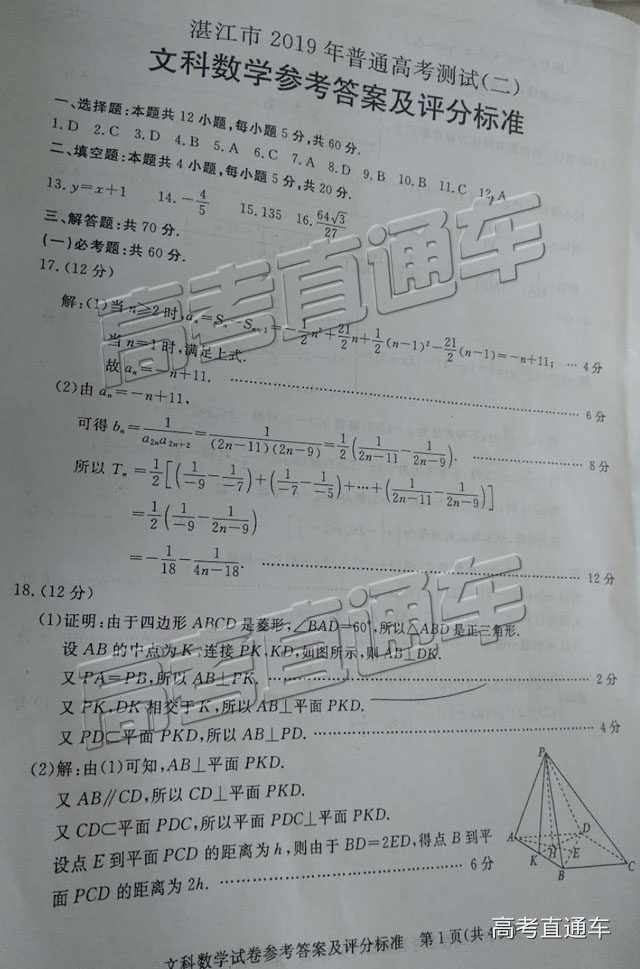 湛江市 2019 年普通高考测试(二)
文科数学参考答案及评分标准
一、选择题:本题共 12 小题,每小题 5 分,共 60 分.
1. D 2. C 3. D 4. B 5. A 6. C 7. A 8. D 9. B 10. B 11. C 12. A
二、填空题:本题共 4 小题,每小题 5 分,共 20 分.
13. y=x+1 14. -4/5 15. 135 16. 64√3/27
三、解答题:共 70 分.
(一)必考题:共 60 分.
17. (12 分)
解:(1)当 n≥2 时,aₙ=Sₙ-Sₙ₋₁=-1/2n²+21/2n+1/2(n-1)²-21/2(n-1)=-n+11; … 4 分
当 n=1 时,满足上式.
故 aₙ=-n+11. …… 6 分
(2)由 aₙ=-n+11,
可得 bₙ=1/(a₂ₙa₂ₙ₊₂)=1/((2n-11)(2n-9))=1/2(1/(2n-11)-1/(2n-9)). …… 8 分
所以 Tₙ=1/2[(1/-9-1/-7)+(1/-7-1/-5)+…+(1/(2n-11)-1/(2n-9))]
=1/2(1/-9-1/(2n-9))
=-1/18-1/(4n-18). …… 12 分
18. (12 分)
(1)证明:由于四边形 ABCD 是菱形,∠BAD=60°,所以△ABD 是正三角形.
设 AB 的中点为 K,连接 PK,KD,如图所示,则 AB⊥DK.
又 PA=PB,所以 AB⊥PK. …… 2 分
又 PK,DK 相交于 K,所以 AB⊥平面 PKD.
又 PD⊂平面 PKD,所以 AB⊥PD. …… 4 分
(2)解:由(1)可知,AB⊥平面 PKD.
又 AB∥CD,所以 CD⊥平面 PKD.
又 CD⊂平面 PDC,所以平面 PDC⊥平面 PKD.
设点 E 到平面 PCD 的距离为 h,则由于 BD=2ED,得点 B 到平
面 PCD 的距离为 2h. …… 6 分
P
A
D
K
H
E
B
C
文科数学试卷参考答案及评分标准 第 1 页(共 4
高考直通车
高考直通车
高考直通车